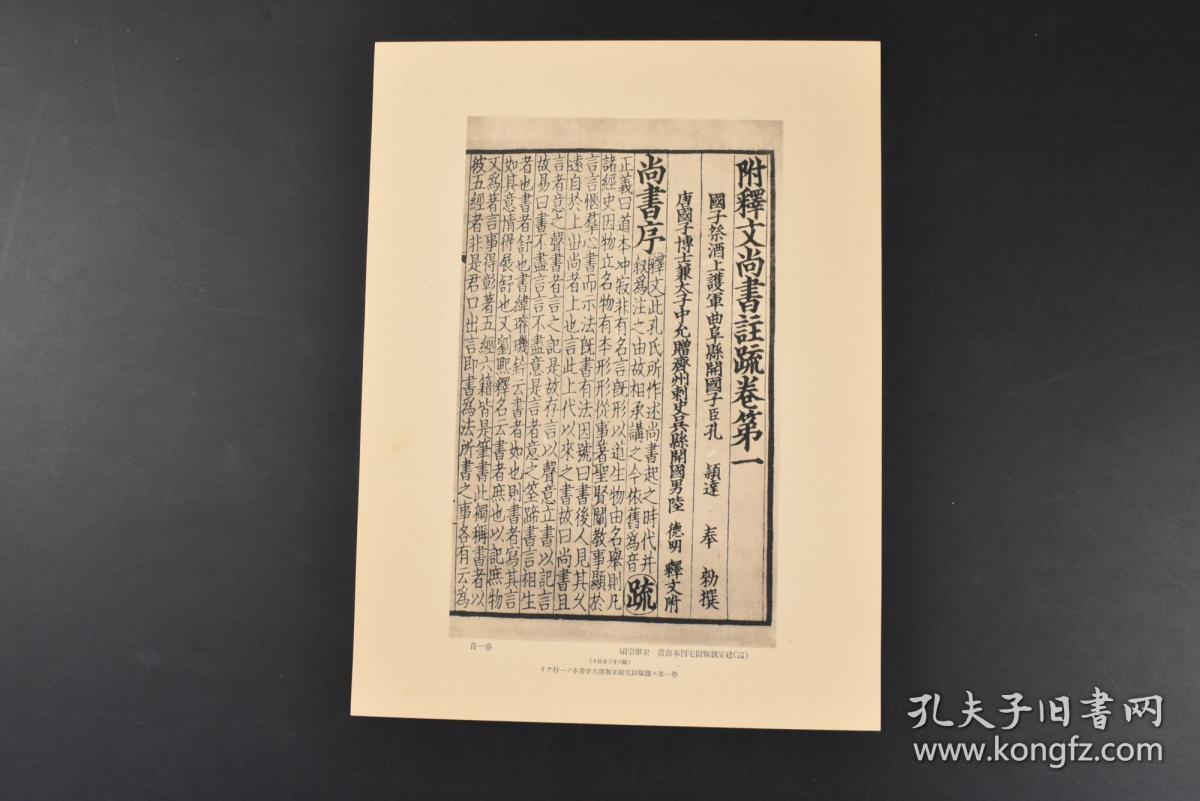 附釋文尚書註疏卷第一
國子祭酒上護軍曲阜縣開國子臣孔 頴達 奉 勑撰
唐國子博士兼太子中允贈齊州刺史吳縣開國男陸 德明 釋文附
尚書序
釋文此孔氏所作述尚書起之時代并
叙為注之由故相承講之今依舊為音
疏
正義曰道本冲寂非有名言旣形以道生物由名舉則凡
諸經史因物立名物有本形形從事著聖賢闡教事顯於
言言愜羣心書而示法旣書有法因號曰書後人見其久
遠自於上世尚者上也言此上代以來之書故曰尚書且
言者意之聲書者言之記是故存言以聲意立書以記言
故易曰書不盡言言不盡意是言者意之筌蹄書言相生
者也書者舒也書緯璿璣鈐云書者如也則書者寫其言
如其意情得展舒也又劉熙釋名云書者庶也以記庶物
又為著言事得彰著五經六籍皆是筆書此獨稱書者以
彼五經者非是君口出言即書為法所書之事各有云為
建安魏縣尉宅刊本 宋寧宗頃
卷一首
孔夫子旧书网
www.kongfz.com